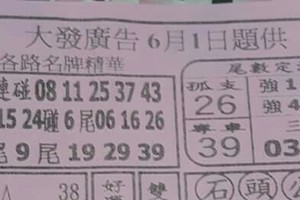 大發廣告6月1日題供
各路名牌精華
尾數定
連碰 08 11 25 37 43
孤支
26
強1
強4
15 24碰 6尾06 16 26
專車
39
03
尾9尾 19 29 39
38
好
雙
石頭公